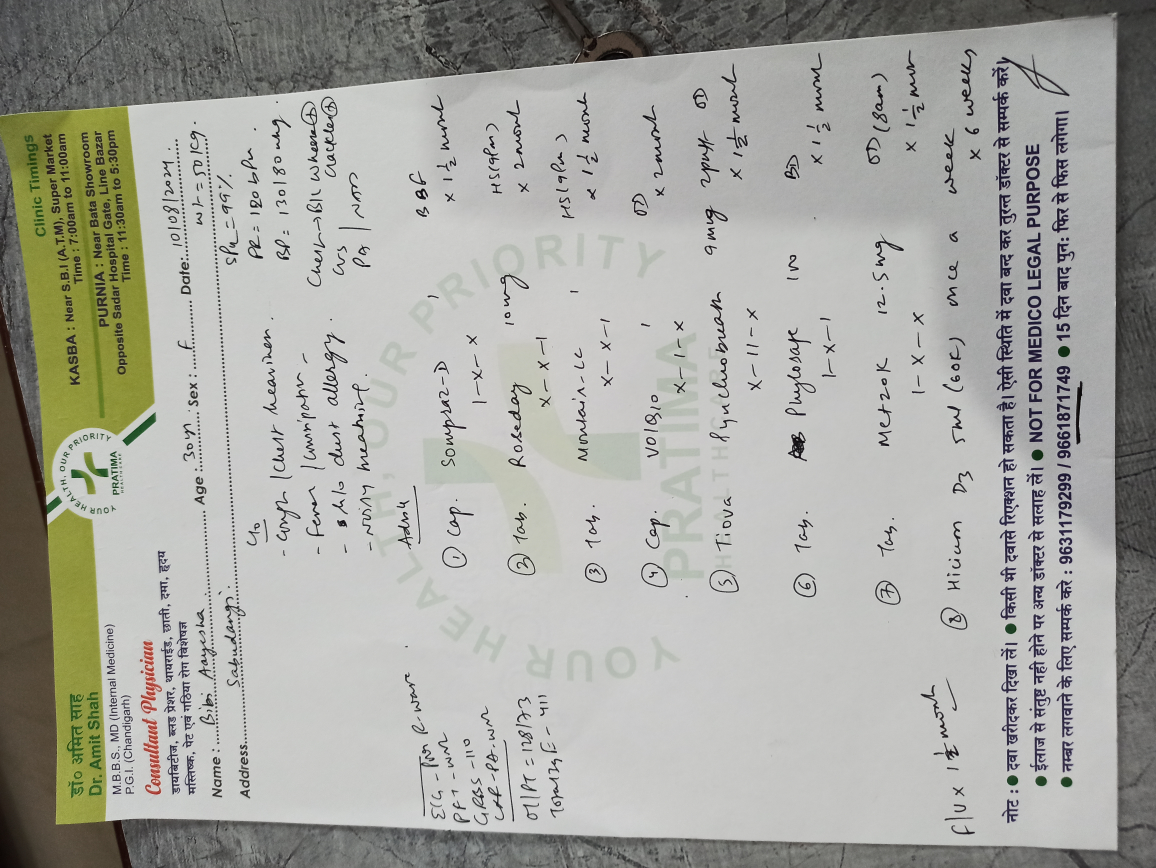 डॉ० अमित साह
Dr. Amit Shah
M.B.B.S., MD (Internal Medicine)
P.G.I. (Chandigarh)
Consultant Physician
डायबिटीज, ब्लड प्रेशर, थायराईड, छाती, दमा, हृदय
मस्तिष्क, पेट एवं गठिया रोग विशेषज्ञ
YOUR HEALTH, OUR PRIORITY
PRATIMA
Clinic Timings
KASBA : Near S.B.I (A.T.M), Super Market
Time : 7:00am to 11:00am
PURNIA : Near Bata Showroom
Opposite Sadar Hospital Gate, Line Bazar
Time : 11:30am to 5:30pm
Name : Bibi Aayesha Age : 30y Sex : F Date: 10/08/2024
Address Sabudangi wt = 50 kg.
SPO2 = 99%.
PR = 120 bpm.
BP = 130/80
Chest → B/L wheeze +
crackle +
CVS
PA | NAD
C/o
- Cough / Chest heaviness.
- Fever / Constipation -
- h/o dust allergy.
- noisy breathing.
ECG - R-wave
PFT - WNL
GRBS - 110
CXR-PA-WNL
OT/PT = 128/73
Total IgE - 411
Advice
① Cap. Sompraz-D BBF
1-x-x x 1½ month
② Tab. Roseday 10mg HS (9pm)
x-x-1 x 2 month
③ Tab. Montair-LC HS (9pm)
x-x-1 x 1½ month
④ Cap. VOIQ10 OD
x-1-x x 2 month
⑤ Tiova Synchrobreath 9mcg 2puff OD
x-11-x x 1½ month
⑥ Tab. Phylosafe 100 BD
1-x-1 x 1½ month
⑦ Tab. Metzok 12.5mg OD (8am)
1-x-x x 1½ month
⑧ D3 5ml (60K) once a week
x 6 weeks
f/u x 1½ month
YOUR HEALTH, OUR PRIORITY
PRATIMA
HEALTHCARE
नोट : ● दवा खरीदकर दिखा लें। ● किसी भी दवासे रिएक्शन हो सकता है। ऐसी स्थिति में दवा बन्द कर तुरन्त डॉक्टर से सम्पर्क करें।
● ईलाज से संतुष्ट नही होने पर अन्य डॉक्टर से सलाह लें। ● NOT FOR MEDICO LEGAL PURPOSE
● नम्बर लगवाने के लिए सम्पर्क करे : 9631179299 / 9661871749 ● 15 दिन बाद पुनः फिर से फिस लगेगा।